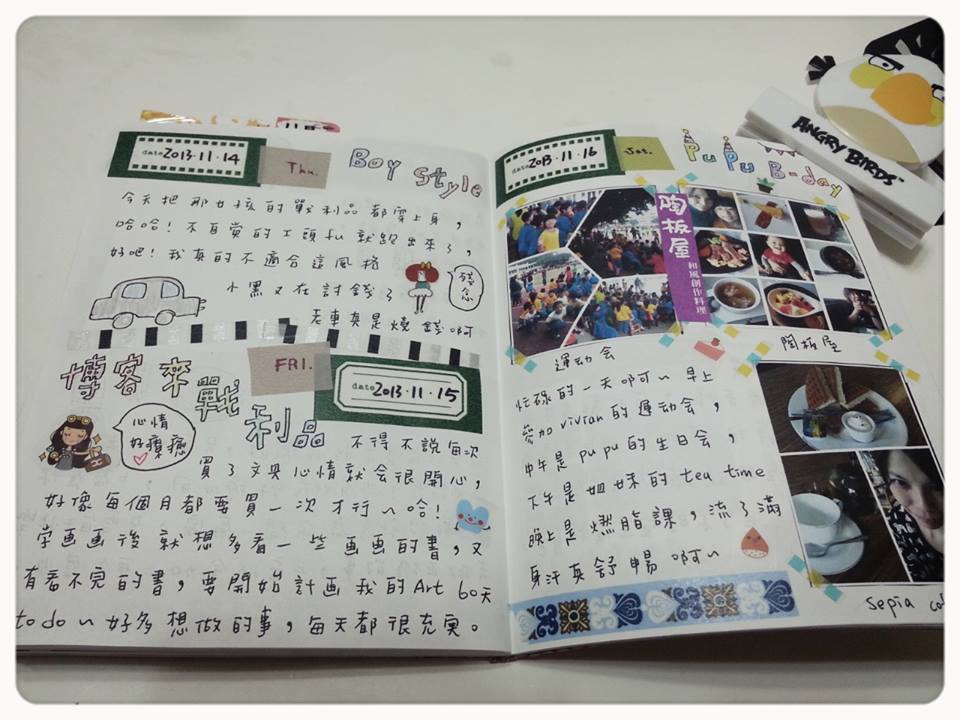 date 2013.11.14
Thu.
Boy Style
今天把那女孩的戰利品都穿上身,
哈哈!不自覺的工頭fu就跑出來了,
好吧!我真的不適合這風格
殘念
小黑又在討錢了
老車真是燒錢啊
博客來戰利品
FRI.
date 2013.11.15
心情
好療癒
不得不說每次
買了文具心情就会很開心,
好像每個月都要買一次才行~哈!
学画画後就想多看一些画画的書,又
有看不完的書,要開始計画我的Art 60天
to do~好多想做的事,每天都很充実。
date 2013.11.16
Sat.
PuPu B-day
陶板屋
和風創作料理
運动会
陶板屋
忙碌的一天啊~早上
參加vivian的運动会,
中午是pupu的生日会,
下午是姐妹的tea time
晚上是燃脂課,流了滿
身汗真舒暢啊~
sepia
ANGRY BIRDS